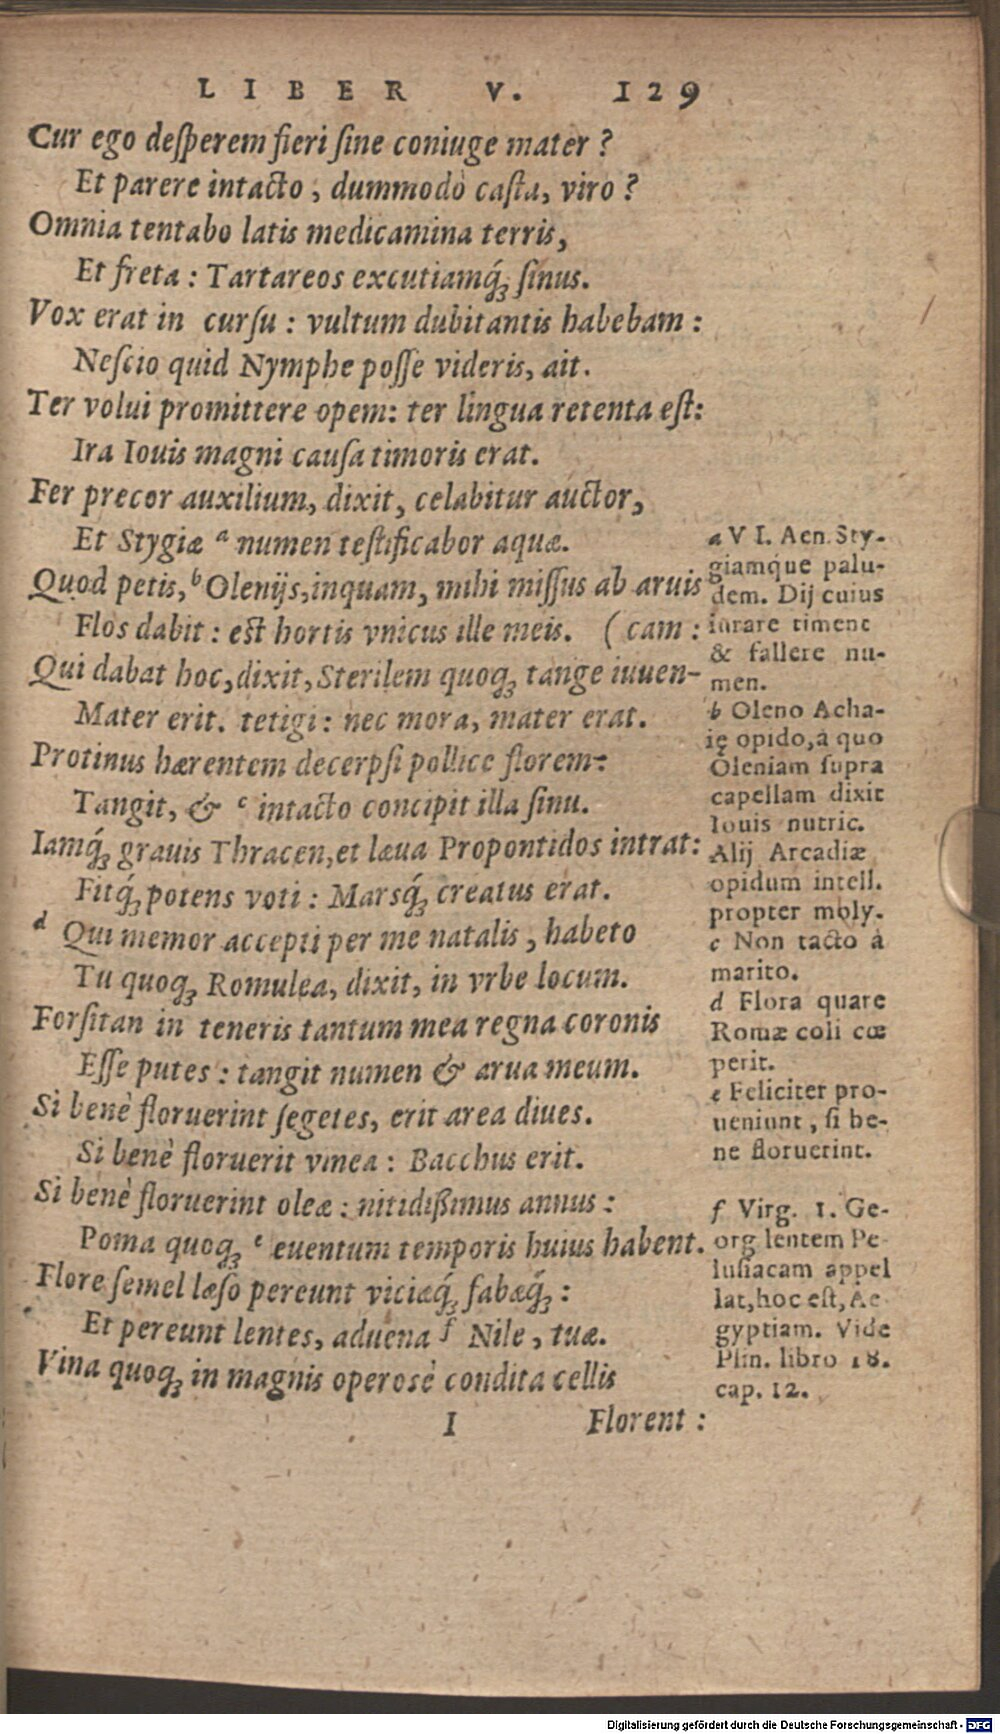 LIBER V. 129
Cur ego deſperem fieri ſine coniuge mater ?
Et parere intacto , dummodò caſta, viro ?
Omnia tentabo latis medicamina terris,
Et freta : Tartareos excutiamq́ꝫ ſinus.
Vox erat in curſu : vultum dubitantis habebam :
Neſcio quid Nymphe poſſe videris, ait.
Ter volui promittere opem: ter lingua retenta eſt:
Ira Iouis magni cauſa timoris erat.
Fer precor auxilium, dixit, celabitur auctor,
Et Stygiæ a numen teſtificabor aquæ.
Quod petis, b Olenijs,inquam, mihi miſſus ab aruis
Flos dabit : eſt hortis vnicus ille meis. ( cam :
Qui dabat hoc,dixit,Sterilem quoqꝫ tange iuuen-
Mater erit. tetigi: nec mora, mater erat.
Protinus hærentem decerpſi pollice florem:
Tangit, & c intacto concipit illa ſinu.
Iamq́ꝫ grauis Thracen,et læua Propontidos intrat:
Fitq́ꝫ potens voti : Marsq́ꝫ creatus erat.
d Qui memor accepti per me natalis , habeto
Tu quoqꝫ Romulea, dixit, in vrbe locum.
Forſitan in teneris tantum mea regna coronis
Eſſe putes : tangit numen & arua meum.
Si benè floruerint ſegetes, erit area diues.
Si benè floruerit vinea : Bacchus erit.
Si benè floruerint oleæ : nitidißimus annus :
Poma quoqꝫ e euentum temporis huius habent.
Flore ſemel læſo pereunt viciæq́ꝫ fabæq́ꝫ :
Et pereunt lentes, aduena f Nile , tuæ.
Vina quoqꝫ in magnis operosè condita cellis
I Florent :
a V I. Aen. Sty-
giamque palu-
dem. Dij cuius
iurare timent
& fallere nu-
men.
b Oleno Acha-
ię opido,à quo
Oleniam ſupra
capellam dixit
Iouis nutric.
Alij Arcadiæ
opidum intell.
propter moly.
c Non tacto à
marito.
d Flora quare
Romæ coli cœ
perit.
e Feliciter pro-
ueniunt , ſi be-
ne floruerint.
f Virg. 1. Ge-
org lentem Pe-
luſiacam appel
lat,hoc eſt, Ae
gyptiam. Vide
Plin. libro 18.
cap. 12.
Digitalisierung gefördert durch die Deutsche Forschungsgemeinschaft - DFG